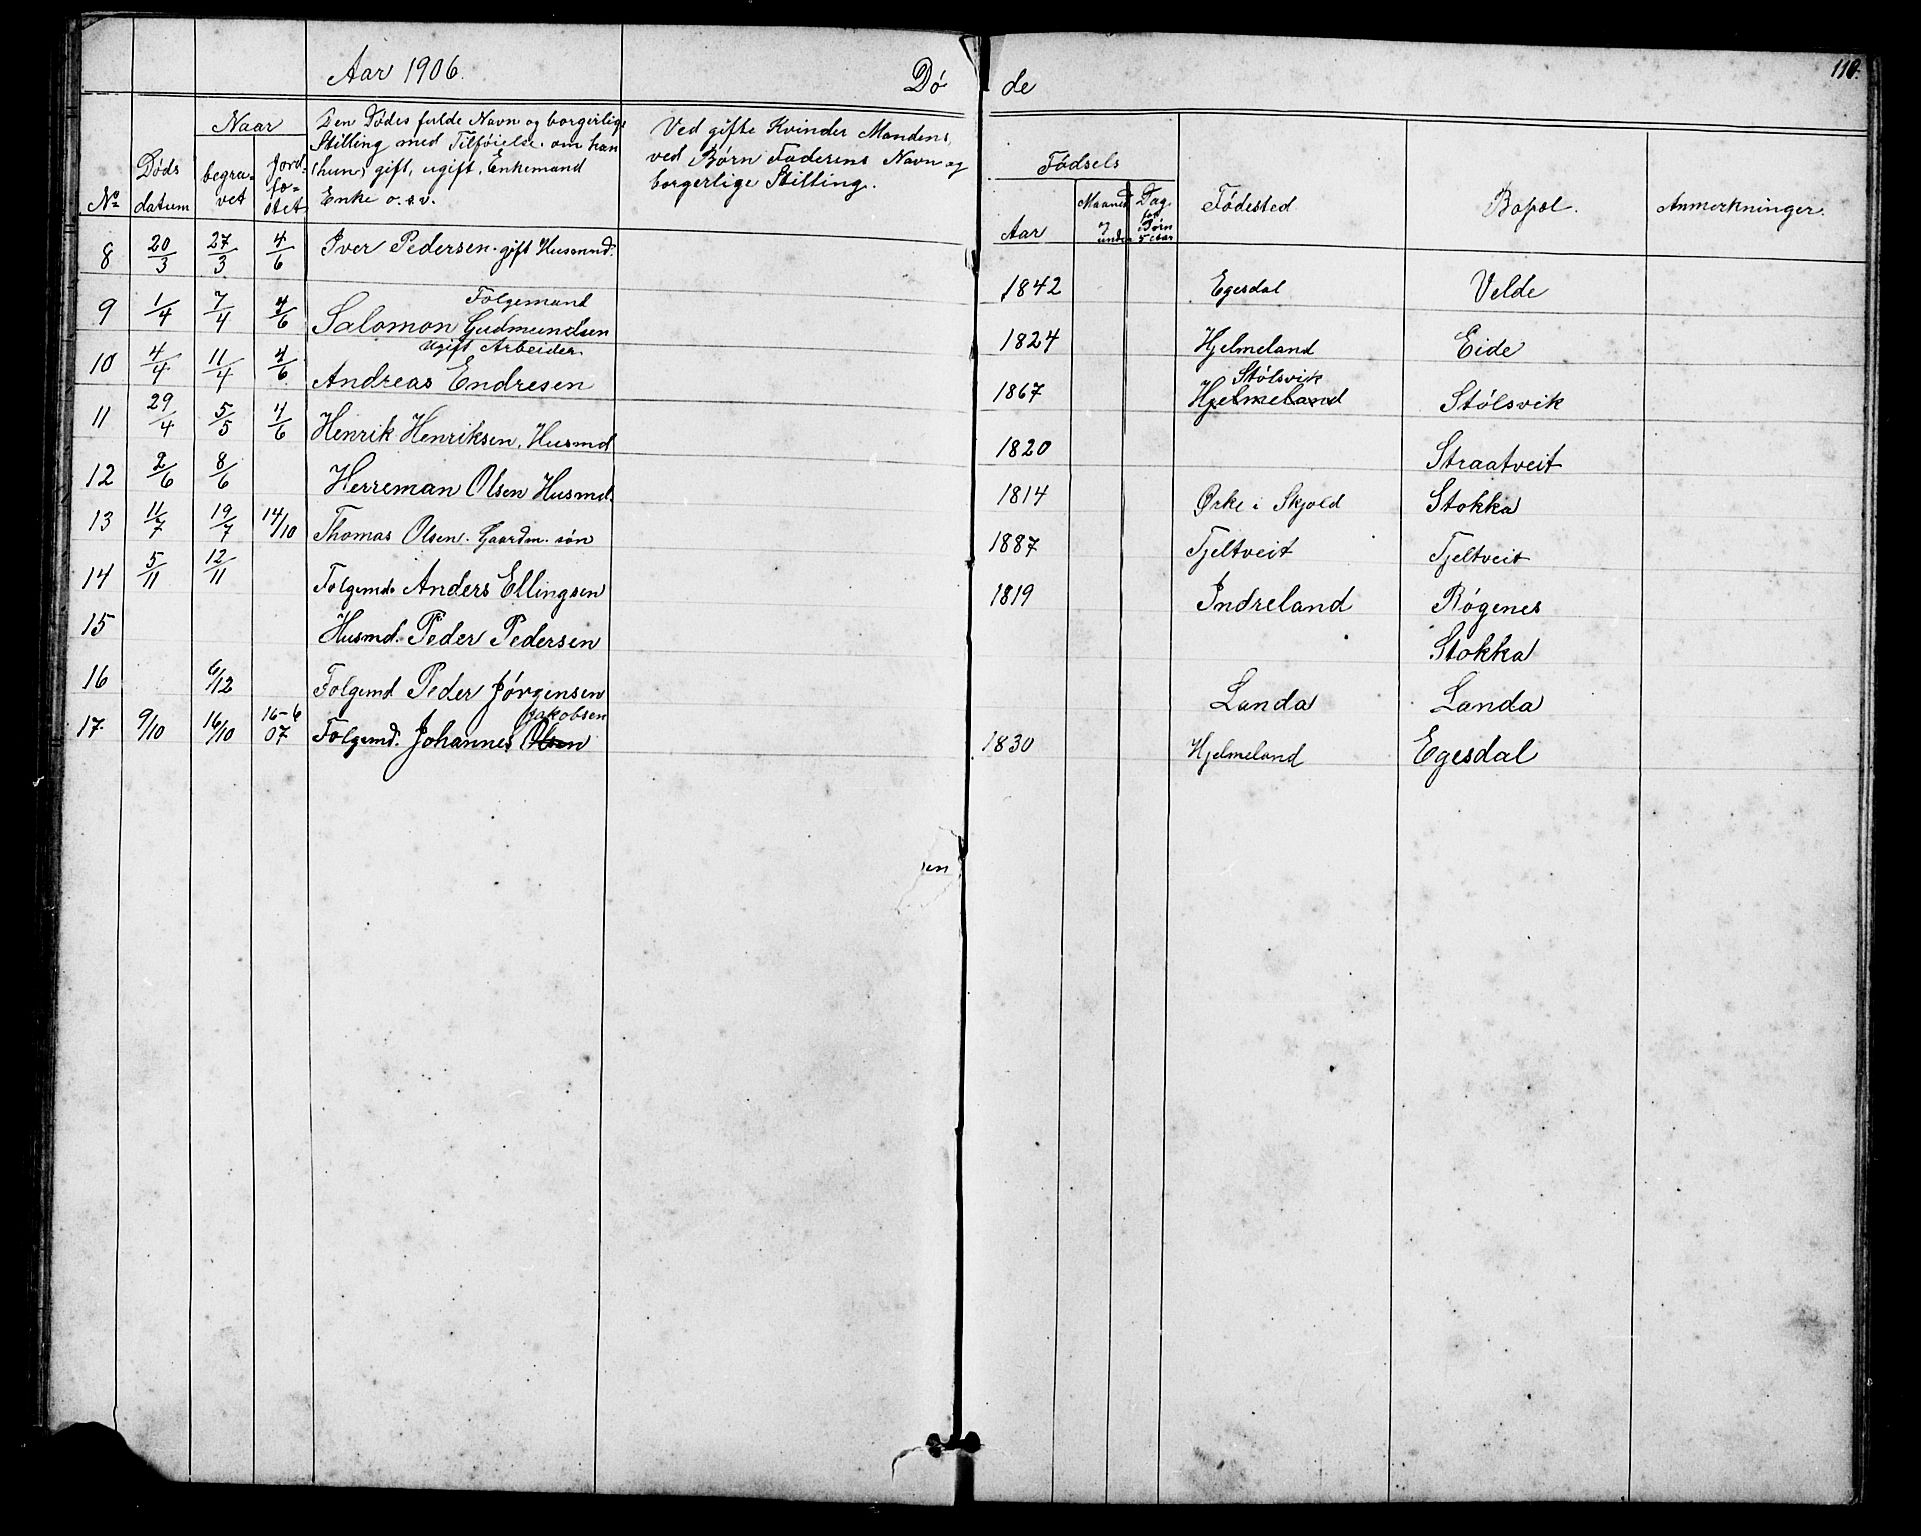 Aar 1906.
Dø de
110.
Naar
No
Døds
datum
begra-
vet
Jord-
fæ-
stet
Den Dødes fulde Navn og borgerlige
Stilling med Tilføielse om han
(hun) gift, ugift, Enkemand
Enke o.s.v.
Ved gifte Kvinder Mandens,
ved Børn Faderens Navn og
borgerlige Stilling.
Fødsels
Aar
Maaned
under
Dag
Børn
5 Aar
Fødested
Bopæl.
Anmerkninger.
8 20/3 27/3 4/6 Iver Pedersen. gift Husmnd. 1842 Egesdal Velde
Folgemand
9 1/4 7/4 4/6 Salomon Gudmundsen 1824 Hjelmeland Eide
ugift Arbeider Stølsvik
10 4/4 11/4 4/6 Andreas Endresen 1867 Hjelmeland Stølsvik
11 29/4 5/5 4/6 Henrik Henriksen, Husmd 1820 Straatveit
12 2/6 8/6 Herreman Olsen Husmd. 1814 Ørke i Skjold Stokka
13 11/7 19/7 14/10 Thomas Olsen. Gaardm. søn 1887 Tjeltveit Tjeltveit
14 5/11 12/11 Folgemd. Anders Ellingsen 1819 Indreland Røgenes
15 Husmd. Peder Pedersen Stokka
16 6/12 Folgemd Peder Jørgensen Landa Landa
Jakobsen
17. 9/10 16/10 16-6 07 Folgemd. Johannes Olsen 1830 Hjelmeland Egesdal
en